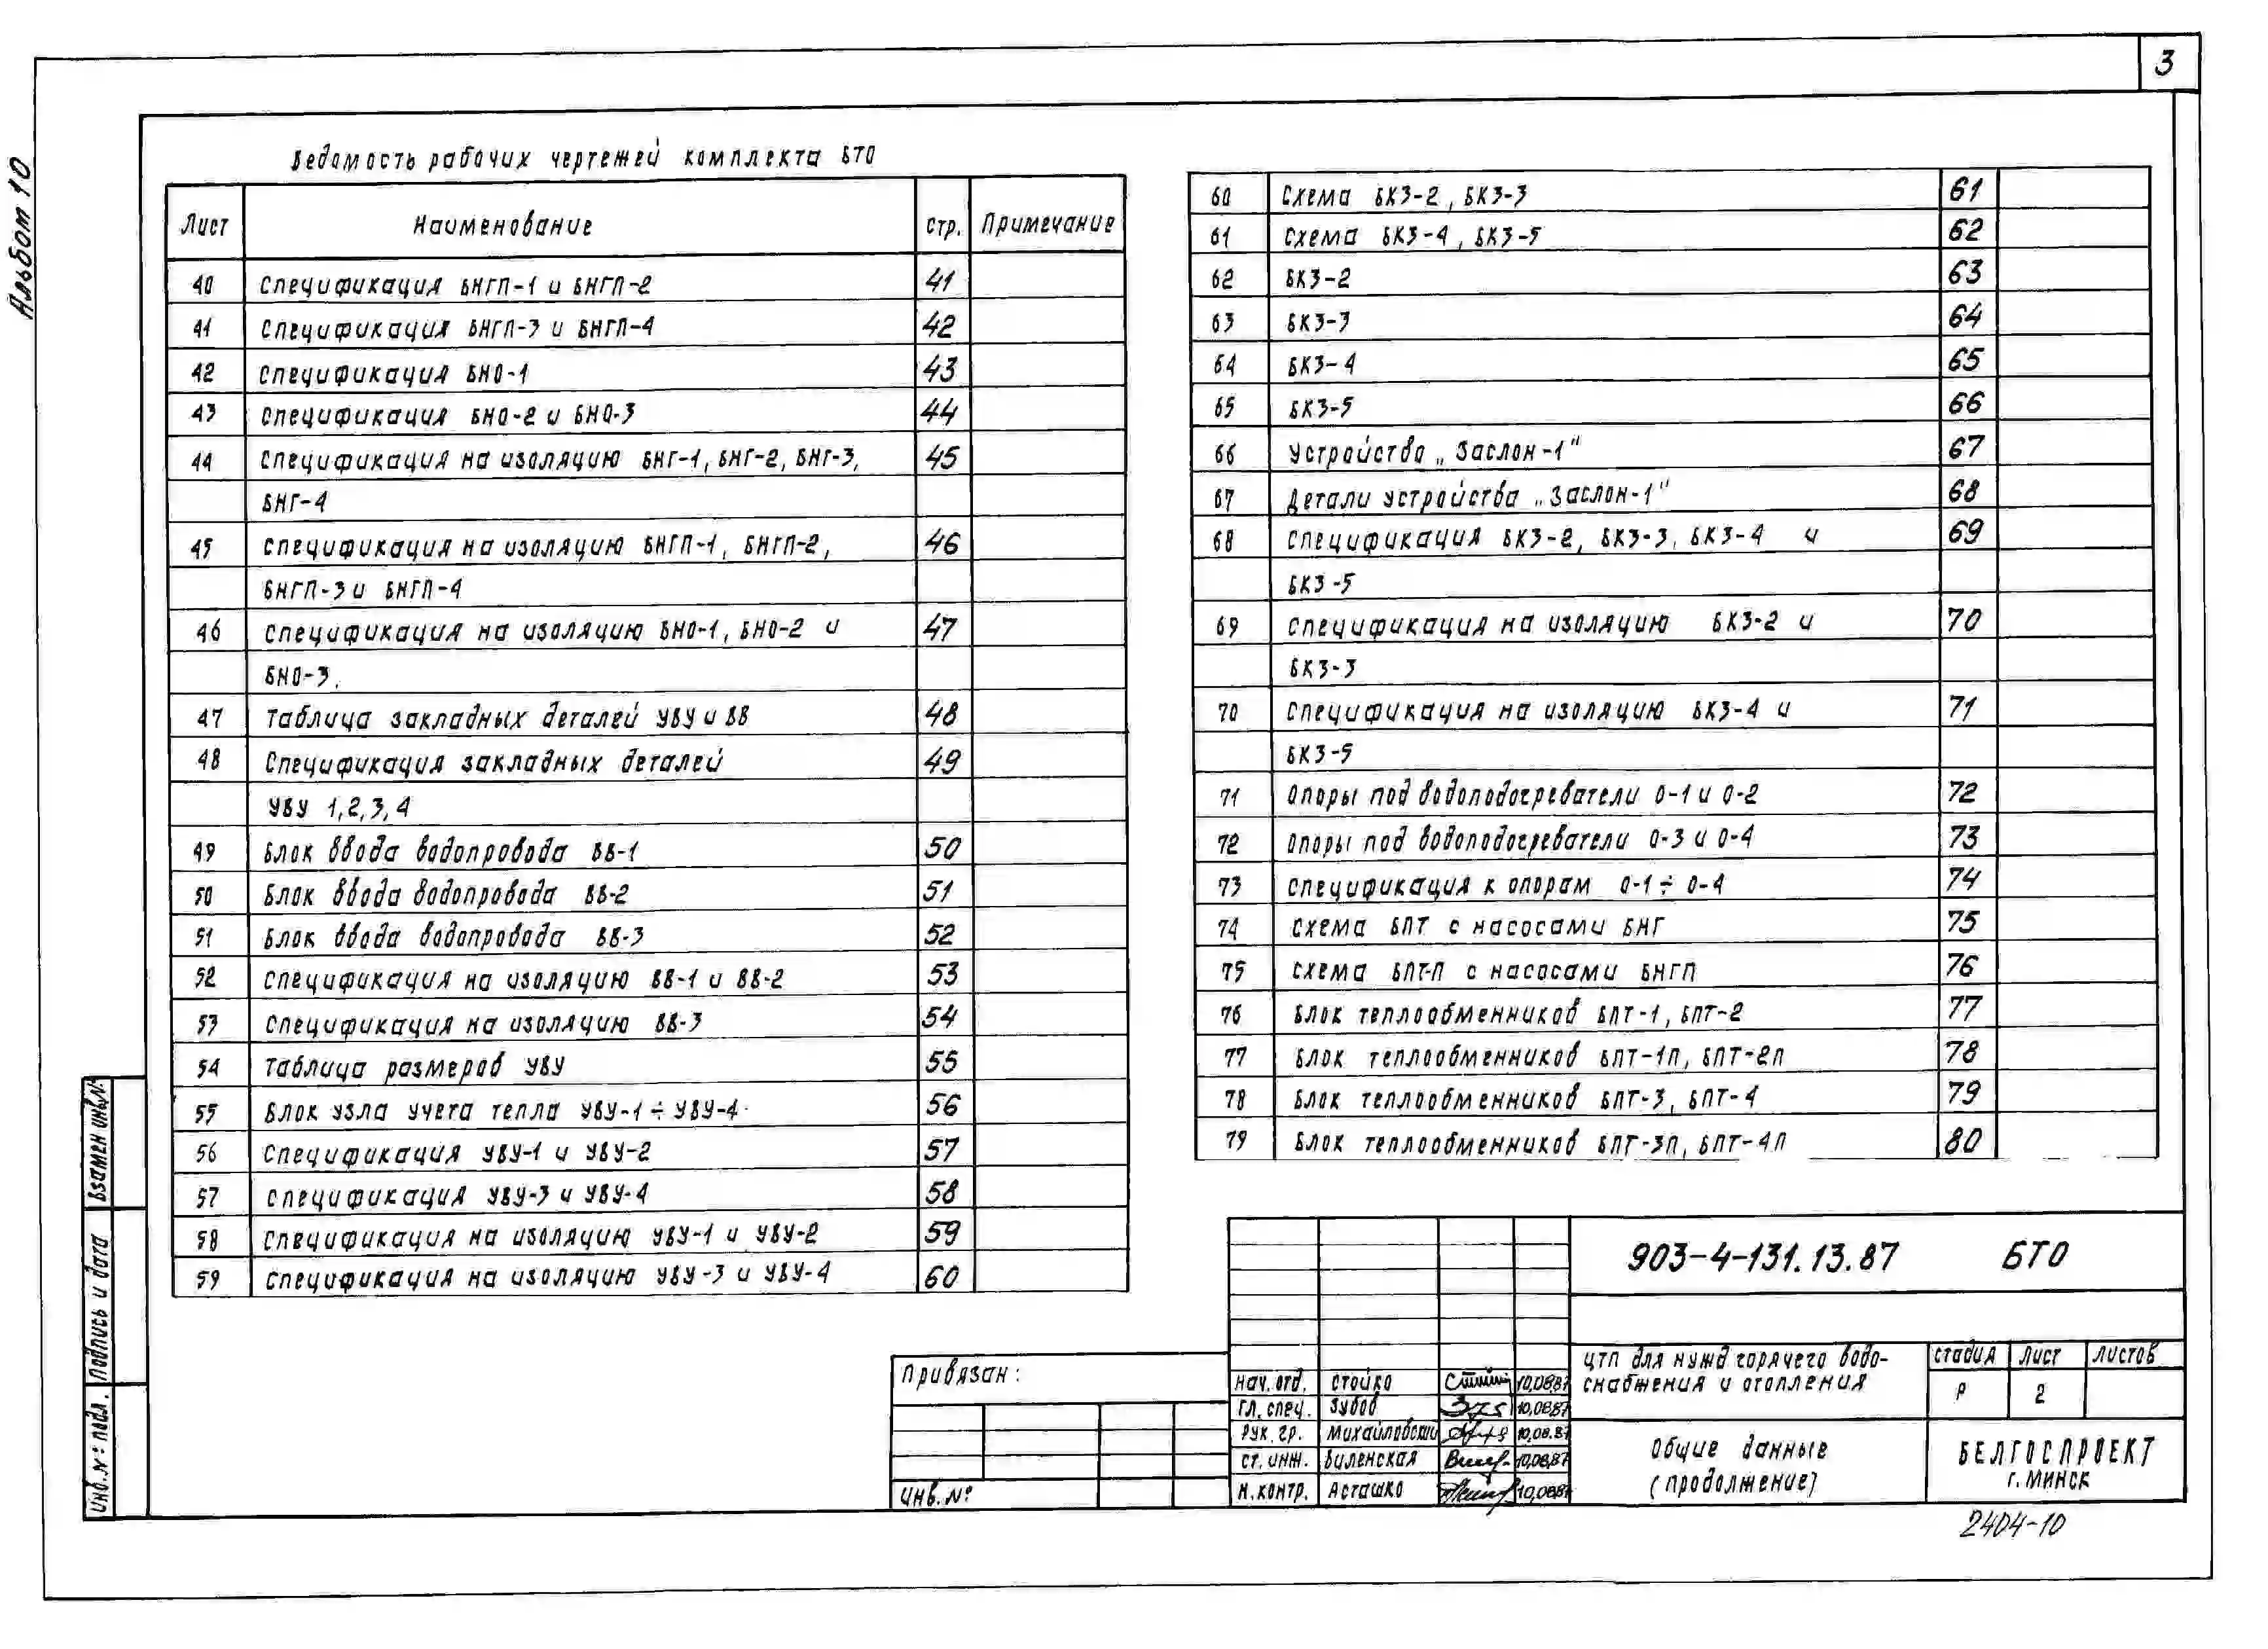 3
Альбом 10
Ведомость рабочих чертежей комплекта БТО
Лист Наименование стр. Примечание
40 Спецификация БНГП-1 и БНГП-2 41
41 Спецификация БНГП-3 и БНГП-4 42
42 Спецификация БНО-1 43
43 Спецификация БНО-2 и БНО-3 44
44 Спецификация на изоляцию БНГ-1, БНГ-2, БНГ-3, 45
БНГ-4
45 Спецификация на изоляцию БНГП-1, БНГП-2, 46
БНГП-3 и БНГП-4
46 Спецификация на изоляцию БНО-1, БНО-2 и 47
БНО-3.
47 Таблица закладных деталей УВУ и ВВ 48
48 Спецификация закладных деталей 49
УВУ 1,2,3,4
49 Блок ввода водопровода ВВ-1 50
50 Блок ввода водопровода ВВ-2 51
51 Блок ввода водопровода ВВ-3 52
52 Спецификация на изоляцию ВВ-1 и ВВ-2 53
53 Спецификация на изоляцию ВВ-3 54
54 Таблица размеров УВУ 55
55 Блок узла учета тепла УВУ-1 ÷ УВУ-4 56
56 Спецификация УВУ-1 и УВУ-2 57
57 Спецификация УВУ-3 и УВУ-4 58
58 Спецификация на изоляцию УВУ-1 и УВУ-2 59
59 Спецификация на изоляцию УВУ-3 и УВУ-4 60
60 Схема БКЗ-2, БКЗ-3 61
61 Схема БКЗ-4, БКЗ-5 62
62 БКЗ-2 63
63 БКЗ-3 64
64 БКЗ-4 65
65 БКЗ-5 66
66 Устройство „Заслон-1" 67
67 Детали устройства „Заслон-1" 68
68 Спецификация БКЗ-2, БКЗ-3, БКЗ-4 и 69
БКЗ-5
69 Спецификация на изоляцию БКЗ-2 и 70
БКЗ-3
70 Спецификация на изоляцию БКЗ-4 и 71
БКЗ-5
71 Опоры под водоподогреватели О-1 и О-2 72
72 Опоры под водоподогреватели О-3 и О-4 73
73 Спецификация к опорам О-1 ÷ О-4 74
74 Схема БПТ с насосами БНГ 75
75 Схема БПТ-П с насосами БНГП 76
76 Блок теплообменников БПТ-1, БПТ-2 77
77 Блок теплообменников БПТ-1П, БПТ-2П 78
78 Блок теплообменников БПТ-3, БПТ-4 79
79 Блок теплообменников БПТ-3П, БПТ-4П 80
Взамен инв.№
Подпись и дата
Инв.№ подл.
Привязан:
Инв.№
903-4-131.13.87 БТО
Нач. отд. Стойко 10.08.87
Гл. спец. Зубов 10.08.87
Рук. гр. Михайловский 10.08.87
Ст. инж. Виленская 10.08.87
Н. контр. Асташко 10.08.87
ЦТП для нужд горячего водо-
снабжения и отопления
Стадия Лист Листов
Р 2
Общие данные
(продолжение)
БЕЛГОСПРОЕКТ
г. Минск
2404-10